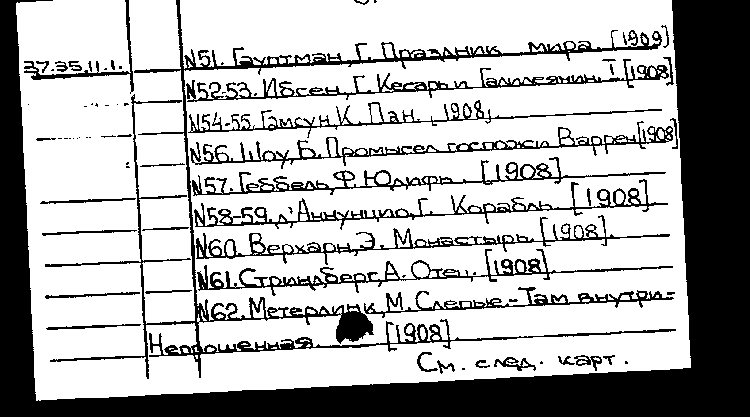 37.35.11.1.
N51. Гауптман, Г. Праздник мира. [1909]
N52-53. Ибсен, Г. Кесарь и Галилеянин. I [1908]
N54-55. Гамсун, К. Пан. 1908.
N56. Шоу, Б. Промысел госпожи Варрен [1908]
N57. Геббель, Ф. Юдифь. [1908].
N58-59. д'Аннунцио, Г. Корабль. [1908].
N60. Верхарн, Э. Монастырь. [1908].
N61. Стриндберг, А. Отец. [1908].
N62. Метерлинк, М. Слепые.-Там внутри-
Непрошенная. [1908]
См. след. карт.